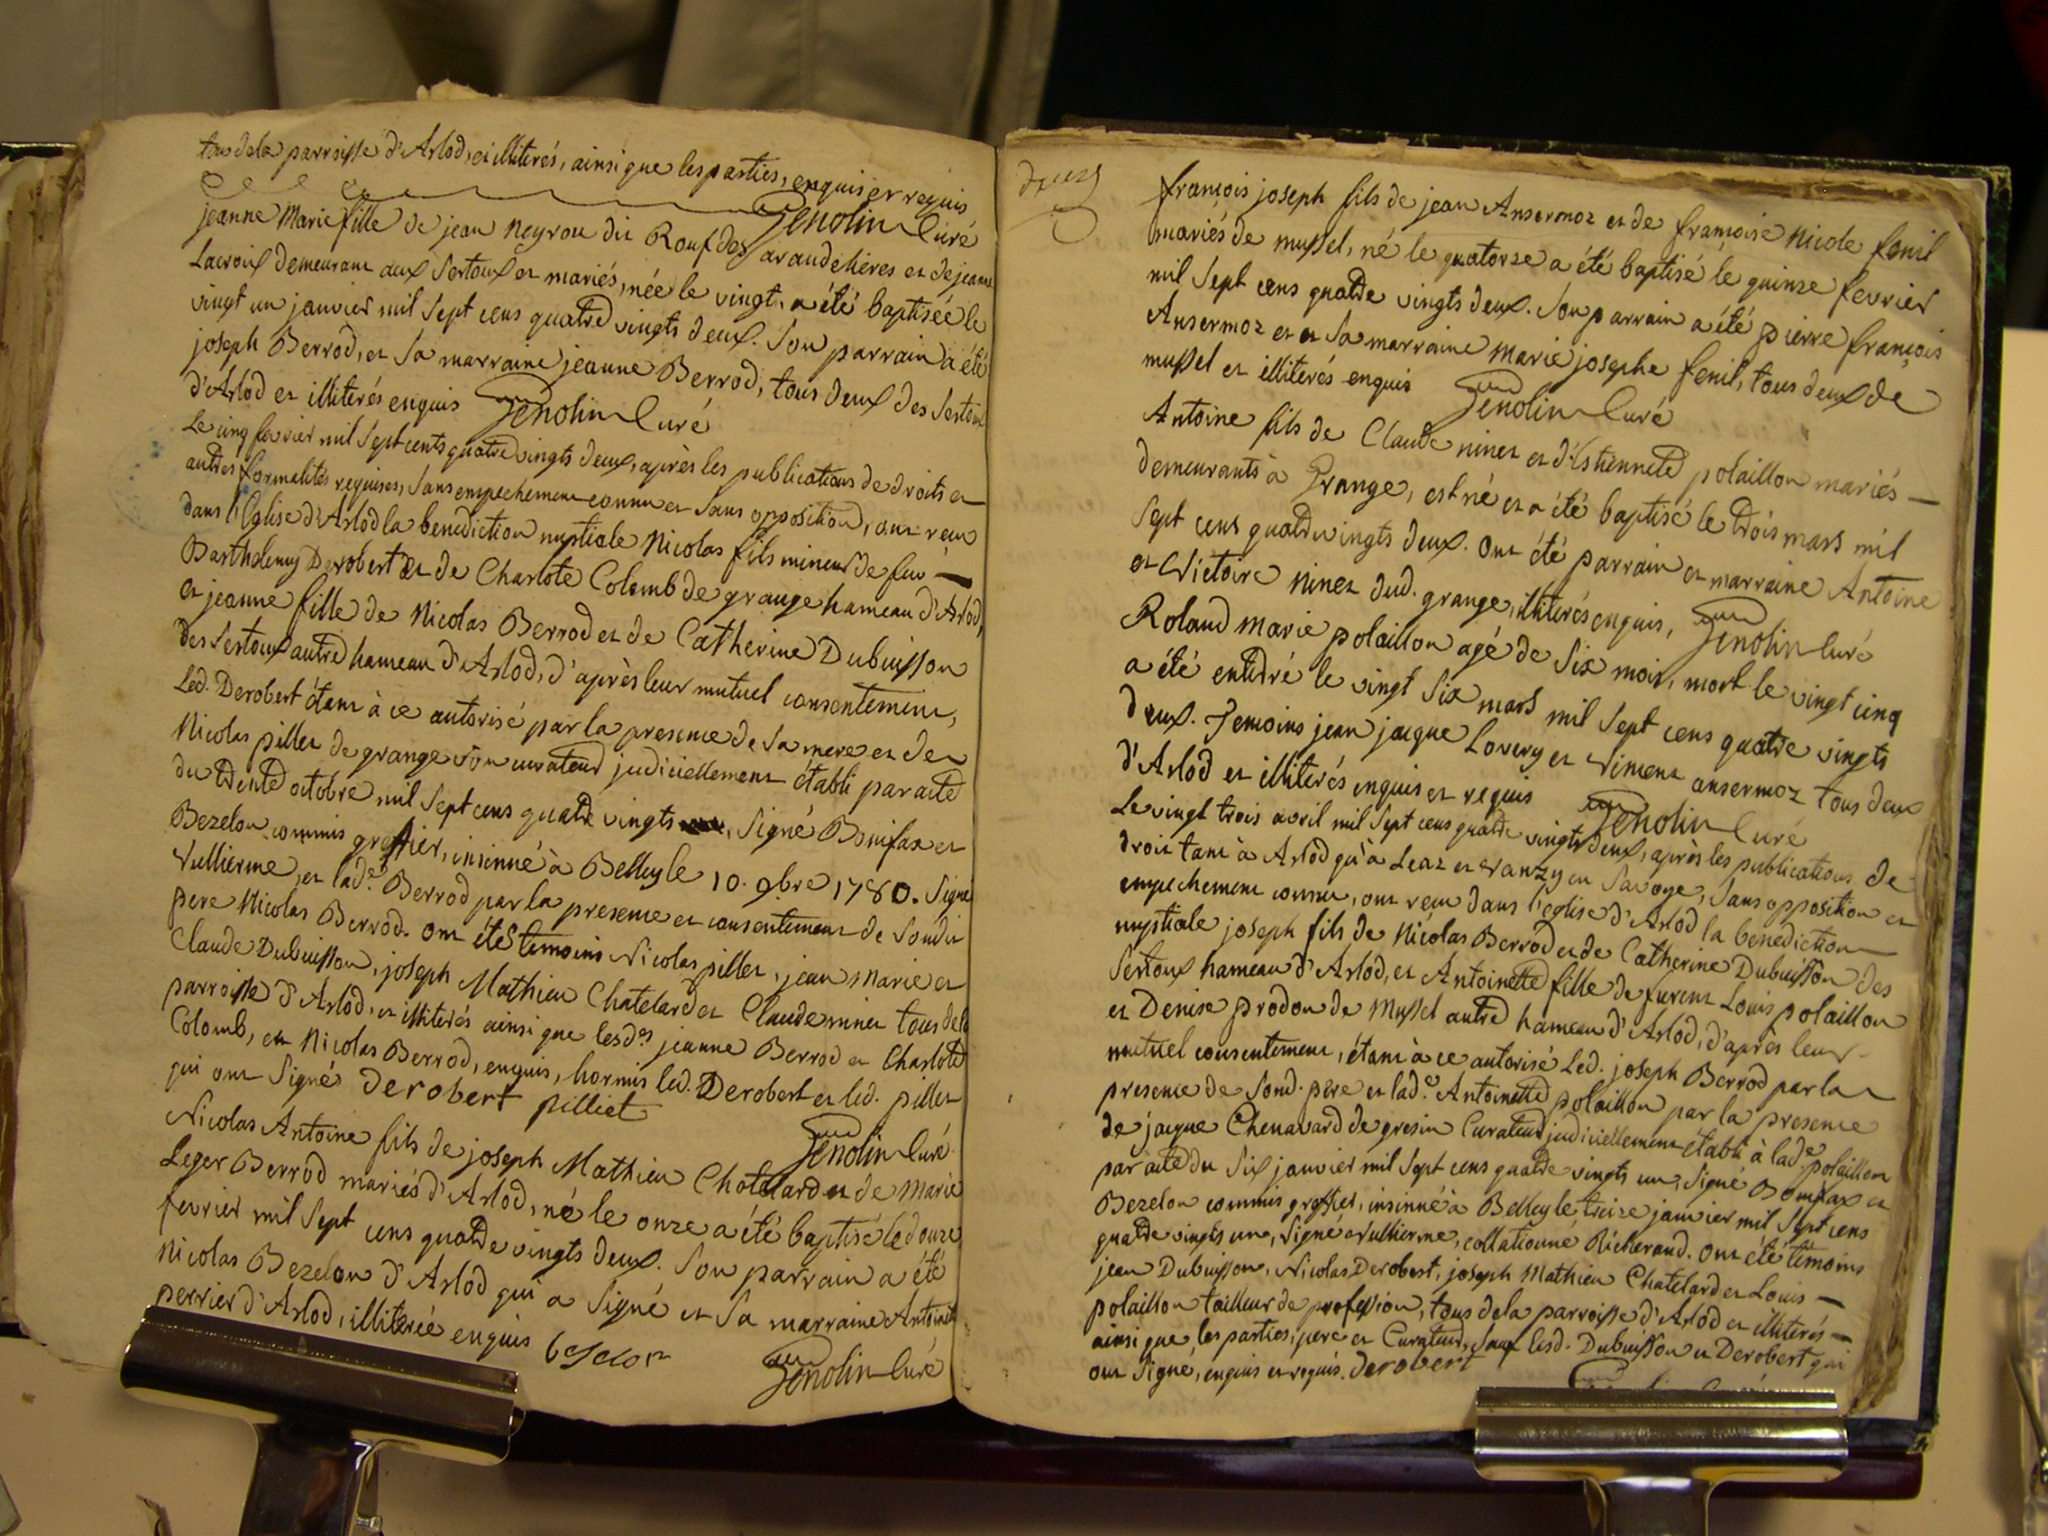 tous de la parroisse d'Arlod, et illiterés, ainsi que les parties, enquis et requis
Genolin Curé
jeanne Marie fille de jean Neyrou dit Rouf des et de jeanne
Lacroix demeurant aux Sertoux et mariés, née le vingt, a été baptisée le
vingt un janvier mil Sept cens quatre vingts deux. Son parrain a été
joseph Berrod, et Sa marraine jeanne Berrod, tous deux des Sertoux
d'Arlod et illiterés enquis Genolin Curé
Le cinq fevrier mil Sept cents quatre vingts deux, après les publications de droits et
autres formalités requises, Sans empechement connu et Sans opposition, ont reçu
dans l'Eglise d'Arlod la benediction nuptiale Nicolas fils mineur de feu
Barthelemy Derobert et de Charlote Colomb de grange hameau d'Arlod,
et jeanne fille de Nicolas Berrod et de Catherine Dubuisson
des Sertoux autre hameau d'Arlod, d'après leur mutuel consentement,
Led. Derobert étant à ce autorisé par la presence de Sa mere et de
Nicolas pillet de grange son curateur judiciellement établi par acte
du trente octobre mil Sept cens quatre vingts, Signé Bonifax et
Bezelon commis greffier, insinué à Belley le 10. 9bre 1780. Signé
Vullierme, et lade. Berrod par la presence et consentement de Sondit
pere Nicolas Berrod. ont été temoins Nicolas pillet, jean Marie et
Claude Dubuisson, joseph Mathieu Chatelard et Claude ninet tous de la
parroisse d'Arlod, et illiterés ainsi que lesd.es jeanne Berrod et Charlote
Colomb, et Nicolas Berrod, enquis, hormis led. Derobert et led. pillet
qui ont Signés derobert pilliet
Genolin Curé
Nicolas Antoine fils de joseph Mathieu Chatelard et de Marie
Leger Berrod mariés d'Arlod, né le onze a été baptisé le douze
fevrier mil Sept cens quatre vingts deux. Son parrain a été
Nicolas Bezelon d'Arlod qui a Signé et Sa marraine Antoinette
perrier d'Arlod, illiterée enquis Bezelon
Genolin Curé
françois joseph fils de jean Ansermoz et de françoise Nicole fenil
mariés de mussel, né le quatorze a été baptisé le quinze fevrier
mil Sept cens quatre vingts deux. Son parrain a été pierre françois
Ansermoz et Sa marraine marie josephe fenil, tous deux de
mussel et illiterés enquis Genolin Curé
Antoine fils de Claude ninet et d'Estiennete polaillon mariés
demeurants à Grange, est né et a été baptisé le trois mars mil
Sept cens quatre vingts deux. Ont été parrain et marraine Antoine
et Victoire Ninet dud. grange, illiterés enquis, Genolin Curé
Roland marie polaillon agé de Six mois, mort le vingt cinq
a été enterré le vingt Six mars mil Sept cens quatre vingts
deux. Temoins jean jacque Lovery et Vincent ansermoz tous deux
d'Arlod et illiterés enquis et requis Genolin Curé
Le vingt trois avril mil Sept cens quatre vingts deux, après les publications de
droit tant à Arlod qu'à Leaz et Vanzy en Savoye, Sans opposition et
empechement connu, ont reçu dans l'eglise d'Arlod la benediction
nuptiale joseph fils de Nicolas Berrod et de Catherine Dubuisson des
Sertoux hameau d'Arlod, et Antoinette fille de Louis polaillon
et Denise prodon de Mussel autre hameau d'Arlod, d'après leur
mutuel consentement, étant à ce autorisé Led. joseph Berrod par la
presence de Sond. pere et lade. Antoinette polaillon par la presence
de jacque Chenavard de gresin Curateur judiciellement établi à lade. polaillon
par acte du Six janvier mil Sept cens quatre vingts un, Signé Bonifax et
Bezelon commis greffier, insinué à Belley le treize janvier mil Sept cens
quatre vingts un, Signé Vullierme, collationné Richerand. Ont été témoins
jean Dubuisson, Nicolas Derobert, joseph Mathieu Chatelard et Louis
polaillon tailleur de profession, tous de la parroisse d'Arlod et illiterés
ainsi que les parties, pere et Curateur, Sauf lesd. Dubuisson et Derobert qui
ont Signé, enquis et requis. derobert